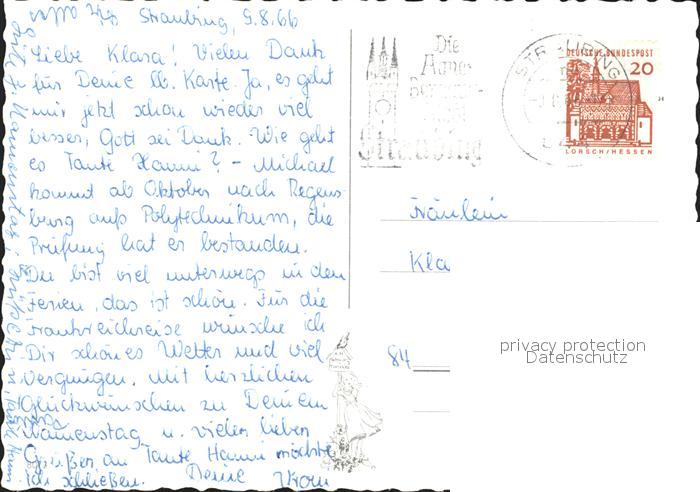 Straubing, 9.8.66
Liebe Klara! Vielen Dank
für Deine lb. Karte. Ja, es geht
mir jetzt schon wieder viel
besser, Gott sei Dank. Wie geht
es Tante Hanni? - Michael
kommt ab Oktober nach Regens-
burg aufs Polytechnikum, die
Prüfung hat er bestanden.
Du bist viel unterwegs in den
Ferien, das ist schön. Für die
Frankreichreise wünsche ich
Dir schönes Wetter und viel
Vergnügen. Mit herzlichen
Glückwünschen zu Deinem
Namenstag u. vielen lieben
Grüßen an Tante Hanni möchte
ich schließen. Deine
Die
Agnes
Straubing
STRAUBING
DEUTSCHE BUNDESPOST
20
LORSCH/HESSEN
Fräulein
Kla
84
privacy protection
Datenschutz